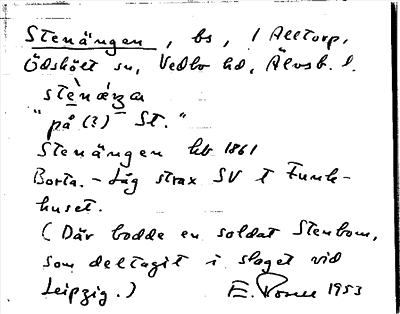 Stenängen, bs, / Alltorp,
Ödskölt sn, Vedbo hd, Älvsb. l.
stènáŋa
"på (?) St."
Stenängen hb 1861
Borta. - Låg strax SV t Funk-
huset.
(Där bodde en soldat Stenbom,
som deltagit i slaget vid
Leipzig.) E. 1953